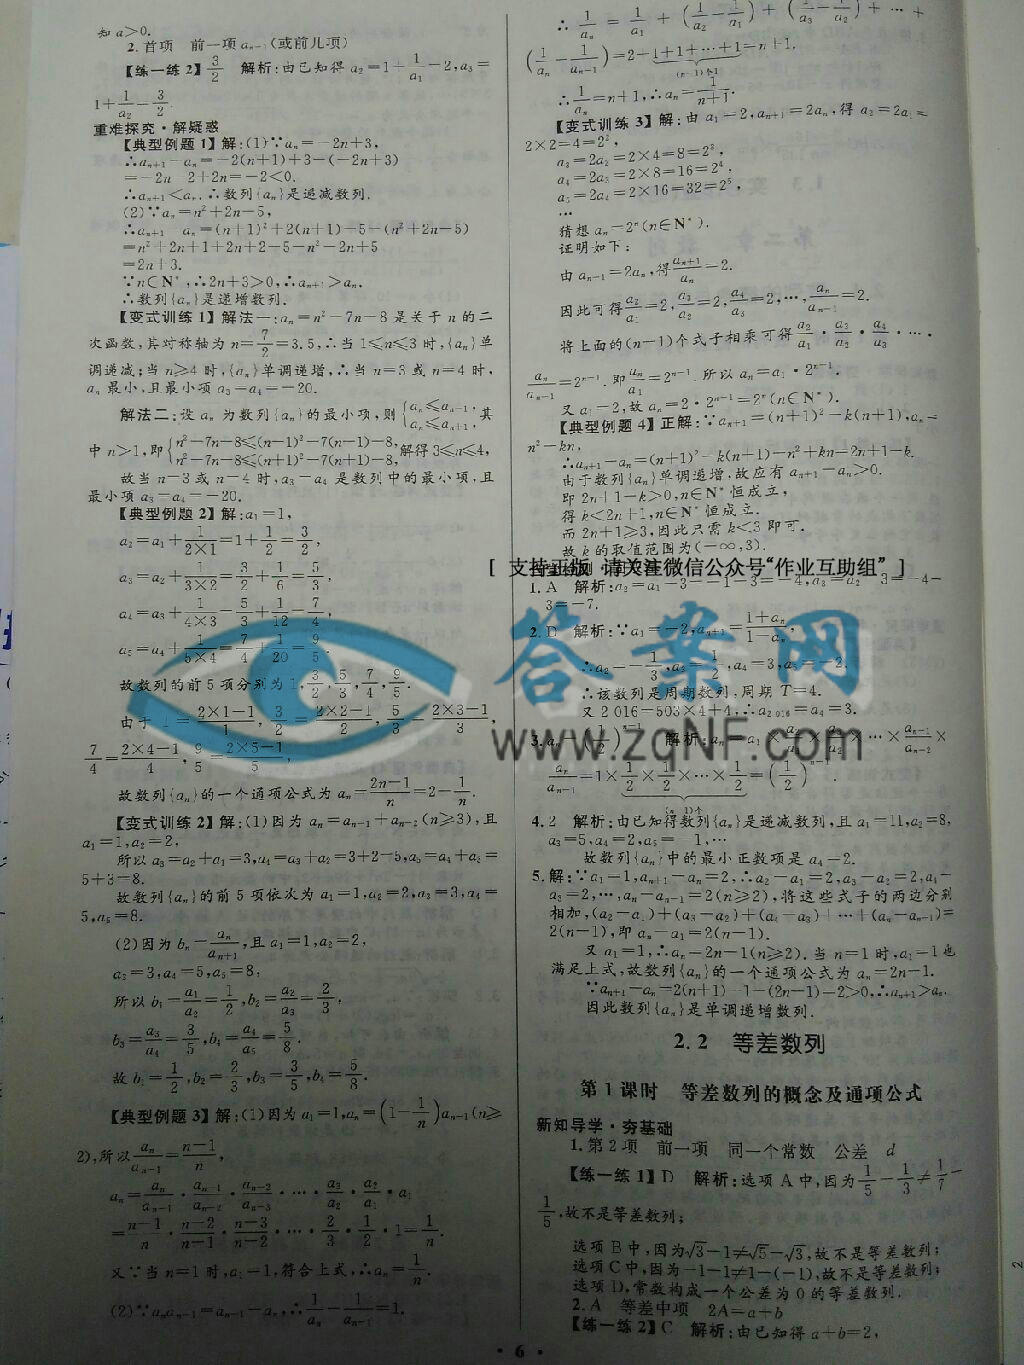 知a>0.
2.首项 前一项aₙ₋₁(或前几项)
【练一练2】3/2 解析:由已知得a₂=1+1/a₁=2,a₃=
1+1/a₂=3/2.
重难探究·解疑惑
【典型例题1】解:(1)∵aₙ=-2n+3,
∴aₙ₊₁-aₙ=-2(n+1)+3-(-2n+3)
=-2n-2+2n=-2<0.
∴aₙ₊₁<aₙ.∴数列{aₙ}是递减数列.
(2)∵aₙ=n²+2n-5,
∴aₙ₊₁-aₙ=(n+1)²+2(n+1)-5-(n²+2n-5)
=n²+2n+1+2n+2-5-n²-2n+5
=2n+3.
∵n∈N*,∴2n+3>0,∴aₙ₊₁>aₙ.
∴数列{aₙ}是递增数列.
【变式训练1】解法一:aₙ=n²-7n-8是关于n的二
次函数,其对称轴为n=7/2=3.5,∴当1≤n≤3时,{aₙ}单
调递减;当n≥4时,{aₙ}单调递增,∴当n=3或n=4时,
aₙ最小,且最小项a₃=a₄=-20.
解法二:设aₙ为数列{aₙ}的最小项,则{aₙ≤aₙ₋₁, aₙ≤aₙ₊₁,其
中n>1,即{n²-7n-8≤(n-1)²-7(n-1)-8, n²-7n-8≤(n+1)²-7(n+1)-8,解得3≤n≤4,
故当n=3或n=4时,a₃=a₄是数列中的最小项,且
最小项a₃=a₄=-20.
【典型例题2】解:a₁=1,
a₂=a₁+1/(2×1)=1+1/2=3/2,
a₃=a₂+1/(3×2)=3/2+1/6=5/3,
a₄=a₃+1/(4×3)=5/3+1/12=7/4,
a₅=a₄+1/(5×4)=7/4+1/20=9/5.
故数列的前5项分别为1,3/2,5/3,7/4,9/5.
由于1=(2×1-1)/1,3/2=(2×2-1)/2,5/3=(2×3-1)/3,
7/4=(2×4-1)/4,9/5=(2×5-1)/5,
故数列{aₙ}的一个通项公式为aₙ=(2n-1)/n=2-1/n.
【变式训练2】解:(1)因为aₙ=aₙ₋₁+aₙ₋₂(n≥3),且
a₁=1,a₂=2,
所以a₃=a₂+a₁=3,a₄=a₃+a₂=3+2=5,a₅=a₄+a₃=
5+3=8.
故数列{aₙ}的前5项依次为a₁=1,a₂=2,a₃=3,a₄=
5,a₅=8.
(2)因为bₙ=aₙ/aₙ₊₁,且a₁=1,a₂=2,
a₃=3,a₄=5,a₅=8,
所以b₁=a₁/a₂=1/2,b₂=a₂/a₃=2/3,
b₃=a₃/a₄=3/5,b₄=a₄/a₅=5/8.
故b₁=1/2,b₂=2/3,b₃=3/5,b₄=5/8.
【典型例题3】解:(1)因为a₁=1,aₙ=(1-1/n)aₙ₋₁(n≥
2),所以aₙ/aₙ₋₁=(n-1)/n,
aₙ=aₙ/aₙ₋₁·aₙ₋₁/aₙ₋₂·aₙ₋₂/aₙ₋₃·…·a₃/a₂·a₂/a₁·a₁
=(n-1)/n·(n-2)/(n-1)·(n-3)/(n-2)·…·2/3·1/2·1=1/n.
又∵当n=1时,a₁=1,符合上式,∴aₙ=1/n.
(2)∵aₙaₙ₋₁=aₙ₋₁-aₙ,∴1/aₙ-1/aₙ₋₁=1.
∴1/aₙ=1/a₁+(1/a₂-1/a₁)+(1/a₃-1/a₂)+…+
(1/aₙ-1/aₙ₋₁)=2+1+1+…+1=n+1.
(n-1)个1
∴1/aₙ=n+1,∴aₙ=1/(n+1).
【变式训练3】解:由a₁=2,aₙ₊₁=2aₙ,得a₂=2a₁=
2×2=4=2²,
a₃=2a₂=2×4=8=2³,
a₄=2a₃=2×8=16=2⁴,
a₅=2a₄=2×16=32=2⁵,
…
猜想aₙ=2ⁿ(n∈N*).
证明如下:
由aₙ₊₁=2aₙ,得aₙ₊₁/aₙ=2.
因此可得a₂/a₁=2,a₃/a₂=2,a₄/a₃=2,…,aₙ/aₙ₋₁=2.
将上面的(n-1)个式子相乘可得a₂/a₁·a₃/a₂·a₄/a₃·…·
aₙ/aₙ₋₁=2ⁿ⁻¹.即aₙ/a₁=2ⁿ⁻¹.所以aₙ=a₁·2ⁿ⁻¹.
又a₁=2,故aₙ=2·2ⁿ⁻¹=2ⁿ(n∈N*).
【典型例题4】正解:∵aₙ₊₁=(n+1)²-k(n+1),aₙ=
n²-kn,
∴aₙ₊₁-aₙ=(n+1)²-k(n+1)-n²+kn=2n+1-k.
由于数列{aₙ}单调递增,故应有aₙ₊₁-aₙ>0.
即2n+1-k>0,n∈N*恒成立,
得k<2n+1,n∈N*恒成立.
而2n+1≥3,因此只需k<3即可.
故k的取值范围为(-∞,3).
[ 支持正版 请关注微信公众号“作业互助组” ]
1.A 解析:a₂=a₁-3=-1-3=-4,a₃=a₂-3=-4-
3=-7.
2.D 解析:∵a₁=-2,aₙ₊₁=(1+aₙ)/(1-aₙ),
∴a₂=-1/3,a₃=1/2,a₄=3,a₅=-2.
∴该数列是周期数列,周期T=4.
又2016=503×4+4,∴a₂₀₁₆=a₄=3.
3.aₙ=(1/2)ⁿ⁻¹ 解析:aₙ=a₁×a₂/a₁×a₃/a₂×…×aₙ₋₁/aₙ₋₂×
aₙ/aₙ₋₁=1×1/2×1/2×…×1/2=(1/2)ⁿ⁻¹.
(n-1)个
4.2 解析:由已知得数列{aₙ}是递减数列,且a₁=11,a₂=8,
a₃=5,a₄=2,a₅=-1,…
故数列{aₙ}中的最小正数项是a₄=2.
5.解:∵a₁=1,aₙ₊₁-aₙ=2,∴a₂-a₁=2,a₃-a₂=2,a₄-
a₃=2,…,aₙ-aₙ₋₁=2(n≥2),将这些式子的两边分别
相加,(a₂-a₁)+(a₃-a₂)+(a₄-a₃)+…+(aₙ-aₙ₋₁)=
2(n-1),即aₙ-a₁=2(n-1).
又a₁=1,∴aₙ=2n-1(n≥2).当n=1时,a₁=1也
满足上式,故数列{aₙ}的一个通项公式为aₙ=2n-1.
∵aₙ₊₁-aₙ=2(n+1)-1-(2n-1)=2>0,∴aₙ₊₁>aₙ.
因此数列{aₙ}是单调递增数列.
2.2 等差数列
第1课时 等差数列的概念及通项公式
新知导学·夯基础
1.第2项 前一项 同一个常数 公差 d
【练一练1】D 解析:选项A中,因为1/5-1/3≠1/7-
1/5,故不是等差数列;
选项B中,因为√3-1≠√5-√3,故不是等差数列;
选项C中,因为-1-1≠1-(-1),故不是等差数列;
选项D,常数构成一个公差为0的等差数列.
2.A 等差中项 2A=a+b
【练一练2】C 解析:由已知得a+b=2,
·6·
答案网
www.zqNF.com